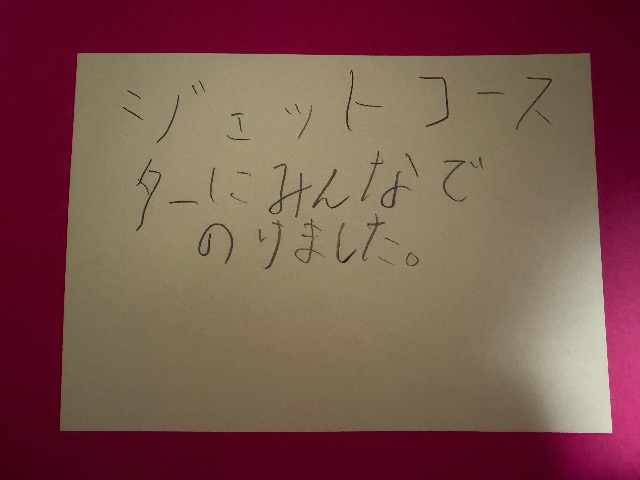 ジェットコース
ターにみんなで
のりました。